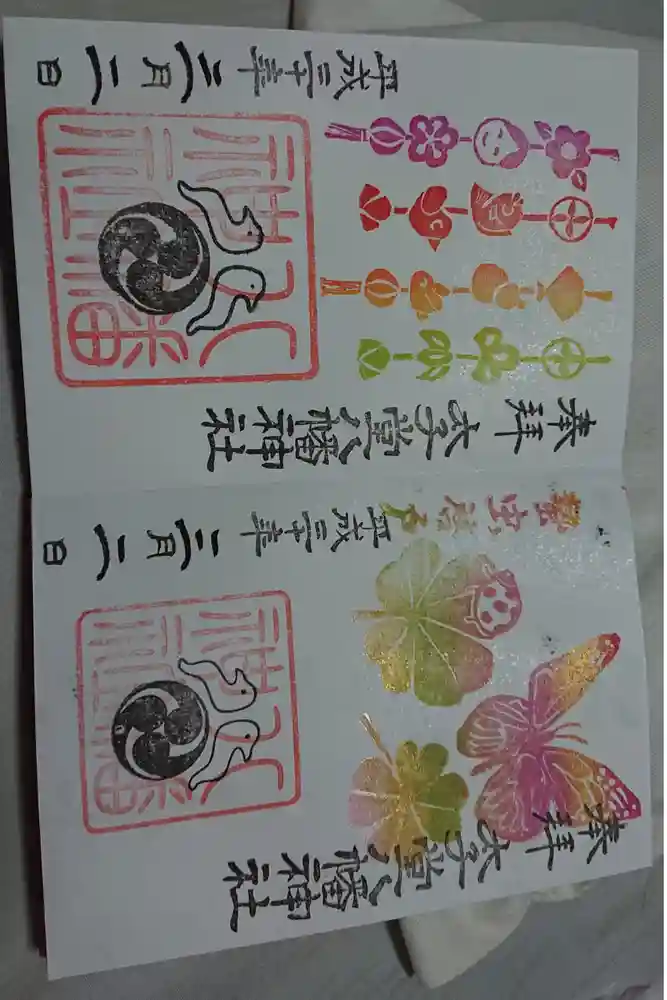 奉拝 太子堂八幡神社
蟄虫啓戸
平成三十年三月二日
奉拝 太子堂八幡神社
平成三十年三月二日